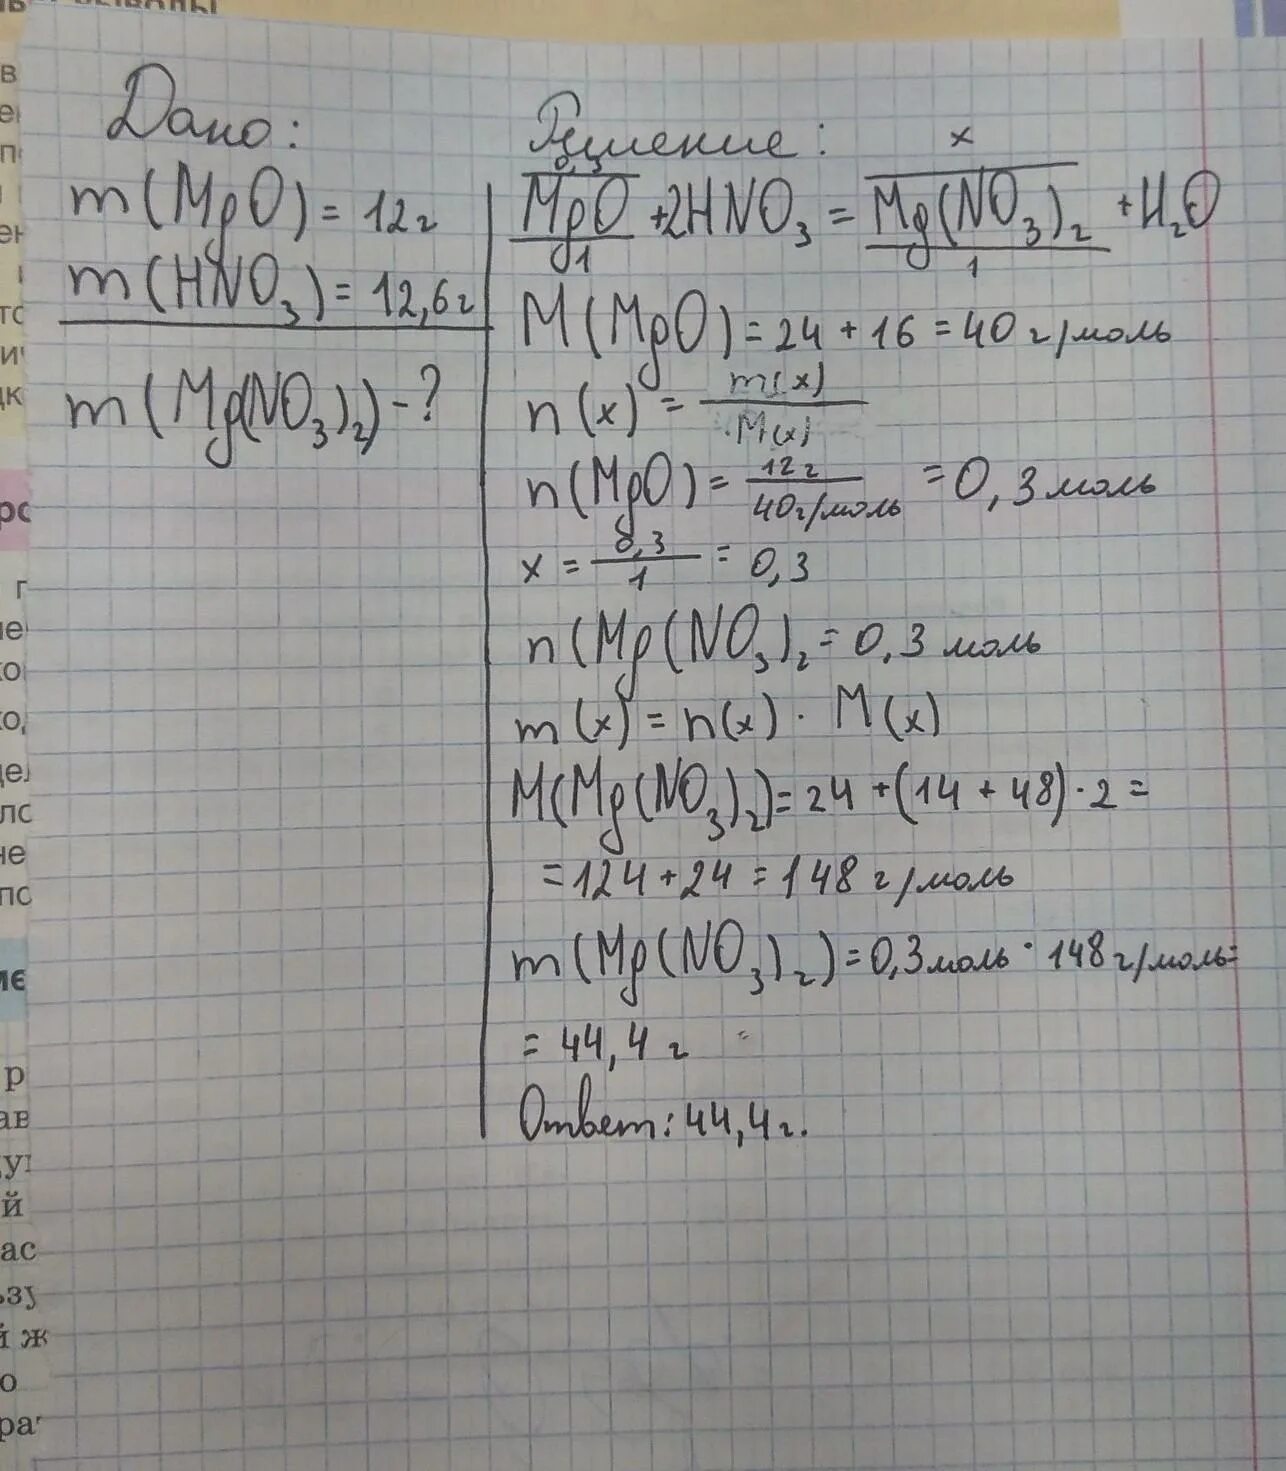 Дано:
m(MgO) = 12г
m(HNO₃) = 12,6г
m(Mg(NO₃)₂) - ?
Решение:
0,3 x
MgO + 2HNO₃ = Mg(NO₃)₂ + H₂O
1 1
M(MgO) = 24 + 16 = 40 г/моль
n(x) = m(x) / M(x)
n(MgO) = 12г / 40г/моль = 0,3 моль
x = 0,3 / 1 = 0,3
n(Mg(NO₃)₂ = 0,3 моль
m(x) = n(x) · M(x)
M(Mg(NO₃)₂) = 24 + (14 + 48) · 2 =
= 124 + 24 = 148 г/моль
m(Mg(NO₃)₂) = 0,3 моль · 148 г/моль =
= 44,4 г
Ответ: 44,4 г.